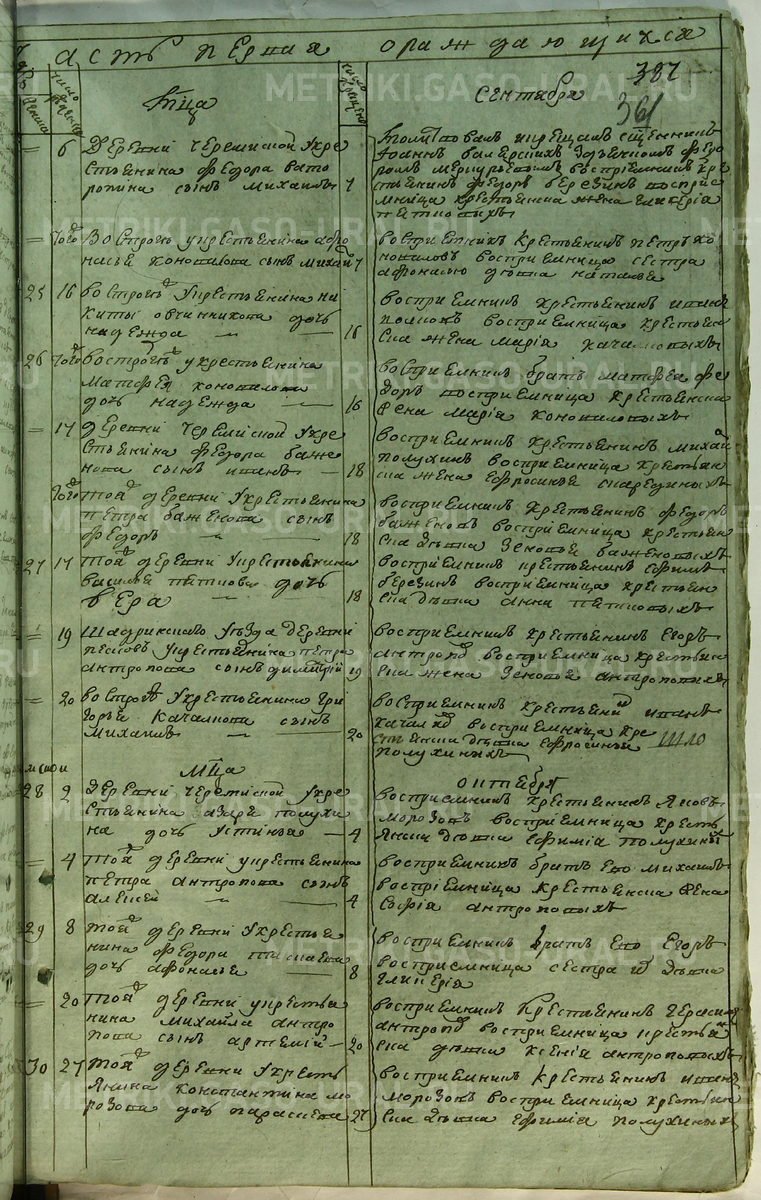 асть первая о раждающихся
387
361
Мца сентября
6 деревни черемиской укре
стьянина федора вато
ропина сынъ михаилъ 7
молитвовалъ и крещалъ сщенникъ
восприемникъ кре
стьянинъ федоръ березинъ восприе
мница крестьянска жена гликерiя
пятковыхъ
того востровъ укрестьянина афо
насья коновалова сынъ михаи 7
восприемникъ крестьянинъ петръ ко
новаловъ восприемница сестра
афонасью девка наталья
25 16 востровъ укрестьянина ни
киты овчинникова дочь
надежда 16
восприемникъ крестьянинъ иванъ
восприемница крестьян
ска жена марiя качалковыхъ
26 того востровъ укрестьянина
матфея коновалова
дочь надежда 16
восприемникъ братъ матфея фе
доръ восприемница крестьянска
жена марiя коноваловыхъ
17 деревни черемиской укре
стьянина федора баже
нова сынъ иванъ 18
восприемникъ крестьянинъ михаи
полухинъ восприемница крестьян
ска жена ефросинья
того той деревни укрестьянина
петра баженова сынъ
федоръ 18
восприемникъ крестьянинъ федоръ
баженовъ восприемница крестьян
ска девка зеновья баженовыхъ
27 17 той деревни укрестьянина
василья пяткова дочь
вера 18
восприемникъ крестьянинъ ефимъ
березинъ восприемница крестьян
ска девка анна пятковыхъ
19 шадринскаго уезда деревни
песковъ укрестьянина петра
антропова сынъ димитрiй 19
восприемникъ крестьянинъ егоръ
антроповъ восприемница крестьян
ска жена зеновья антроповыхъ
20 востровъ укрестьянина гри
горья качалкова сынъ
михаилъ 20
восприемникъ крестьянинъ иванъ
качалковъ восприемница кре
стьянска девка ефросинья
полухиныхъ
Мца октября
28 2 деревни черемиской укре
стьянина азарья полухи
на дочь устинья 4
восприемникъ крестьянинъ яковъ
морозовъ восприемница кресть
янска девка ефимiя полухиныхъ
4 той деревни укрестьянина
петра антропова сынъ
алексей 4
восприемникъ братъ ево михаилъ
восприемница крестьянска жена
софiя антроповыхъ
29 8 той деревни укрестья
нина федора
дочь афонасья 8
восприемникъ братъ ево егоръ
восприемница сестра девка
гликерiя
20 той деревни укрестья
нина михайла антро
пова сынъ артемiй 20
восприемникъ крестьянинъ герасимъ
антроповъ восприемница крестьян
ска девка ксенiя антроповыхъ
30 27 той деревни укресть
янина констянтина мо
розова дочь параскева 27
восприемникъ крестьянинъ иванъ
морозовъ восприемница крестьян
ска девка ефимiя полухиныхъ